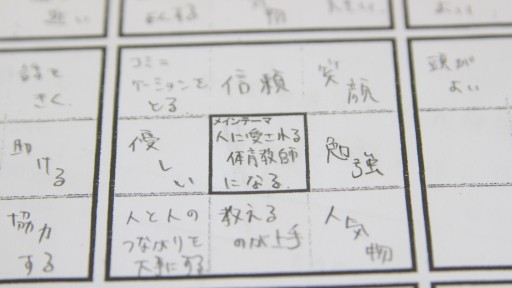 よくする
物
よい
話を
きく
助
ける
協力
する
コミュ
ケーションを
とる
信頼
笑顔
優
しい
メインテーマ
人に愛される
体育教師
になる
勉強
人と人の
つながりを
大事にする
教える
のが上手
人気
物
頭が
よい